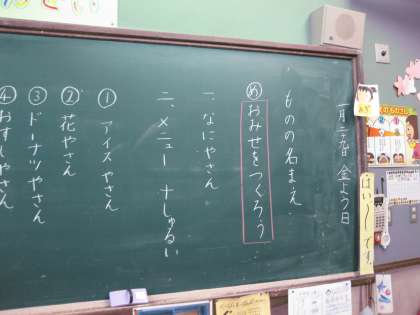 金よう日
ものの名まえ
め おみせをつくろう
一、なにやさん
二、メニュー 十しゅるい
① アイスやさん
② 花やさん
③ ドーナツやさん
④ おすしやさん